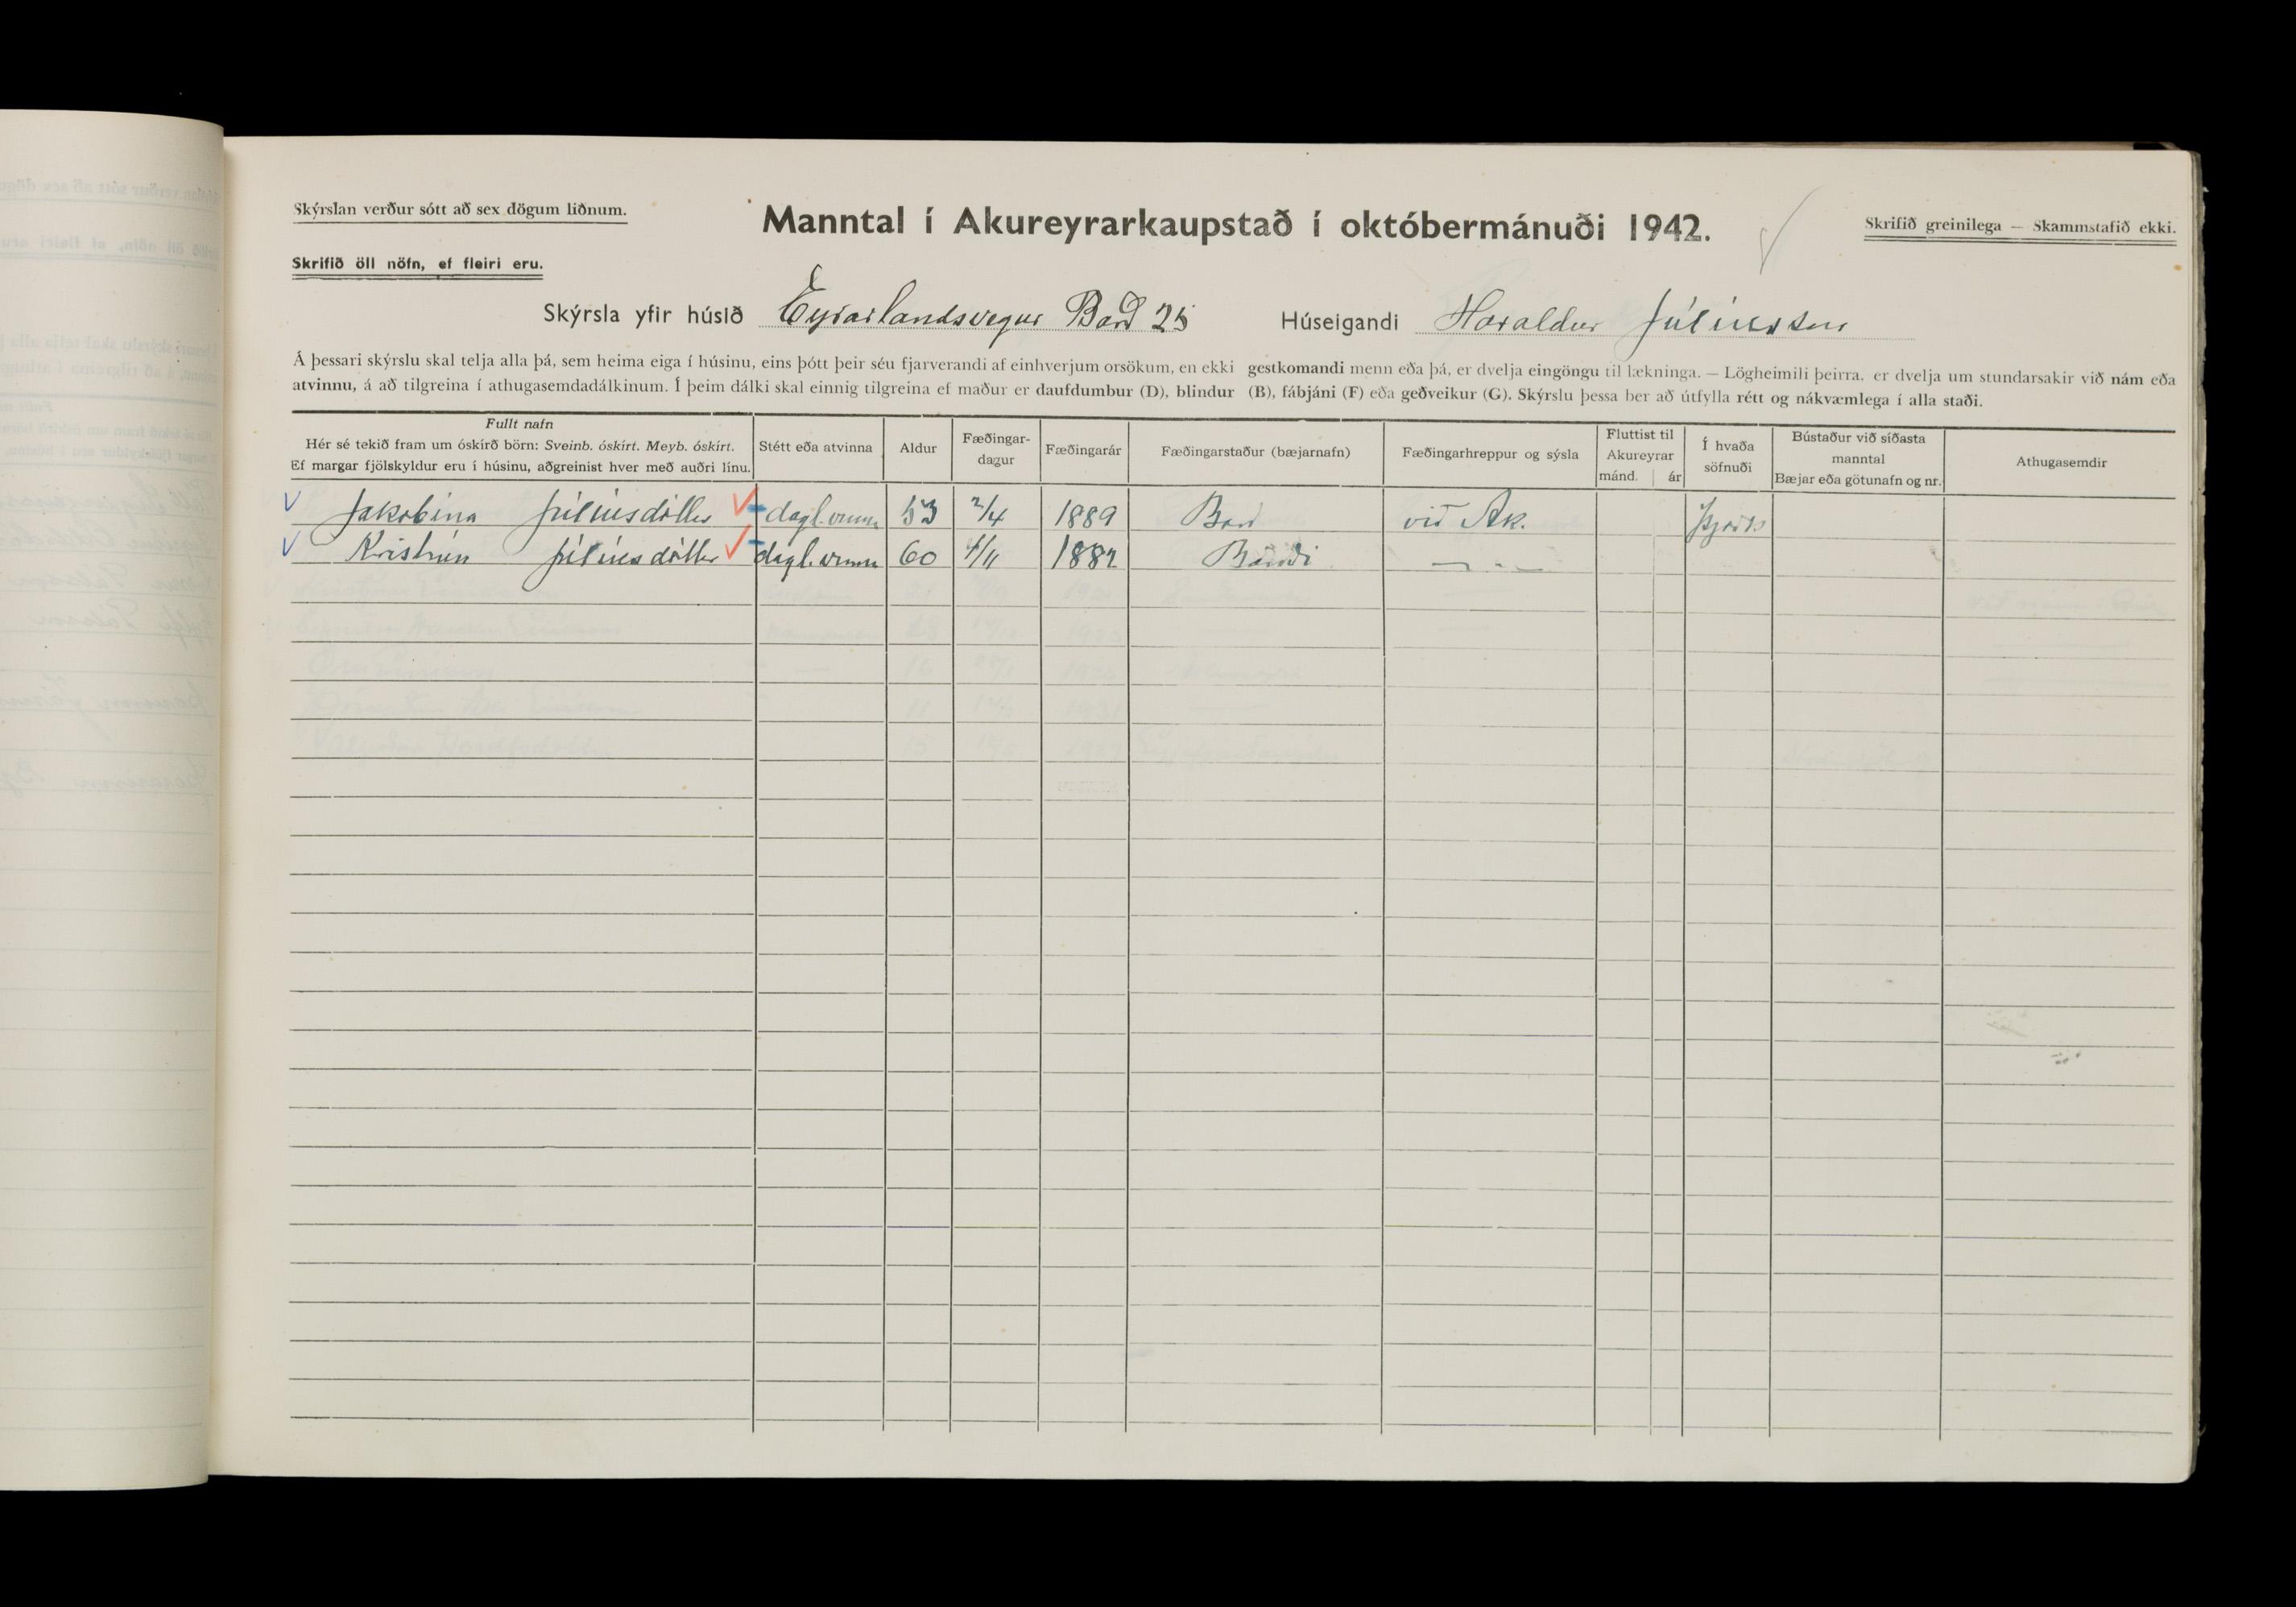 Skýrslan verður sótt að sex dögum liðnum.
Manntal í Akureyrarkaupstað í októbermánuði 1942.
Skrifið greinilega — Skammstafið ekki.
Skrifið öll nöfn, ef fleiri eru.
Skýrsla yfir húsið Eyrarlandsvegur Barð 25 Húseigandi Haraldur Júlíusson
Á þessari skýrslu skal telja alla þá, sem heima eiga í húsinu, eins þótt þeir séu fjarverandi af einhverjum orsökum, en ekki gestkomandi menn eða þá, er dvelja eingöngu til lækninga. — Lögheimili þeirra, er dvelja um stundarsakir við nám eða
atvinnu, á að tilgreina í athugasemdadálkinum. Í þeim dálki skal einnig tilgreina ef maður er daufdumbur (D), blindur (B), fábjáni (F) eða geðveikur (G). Skýrslu þessa ber að útfylla rétt og nákvæmlega í alla staði.
Fullt nafn
Hér sé tekið fram um óskírð börn: Sveinb. óskírt. Meyb. óskírt.
Ef margar fjölskyldur eru í húsinu, aðgreinist hver með auðri línu.
Stétt eða atvinna
Aldur
Fæðingar-
dagur
Fæðingarár
Fæðingarstaður (bæjarnafn)
Fæðingarhreppur og sýsla
Fluttist til
Akureyrar
mánd. ár
Í hvaða
söfnuði
Bústaður við síðasta
manntal
Bæjar eða götunafn og nr.
Athugasemdir
Jakobína Júlíusdóttir dagl. vinna 53 2/4 1889 Barð við Ak. Þjóðk
Kristrún Júlíusdóttir dagl. vinna 60 /11 1882 Barði — " —